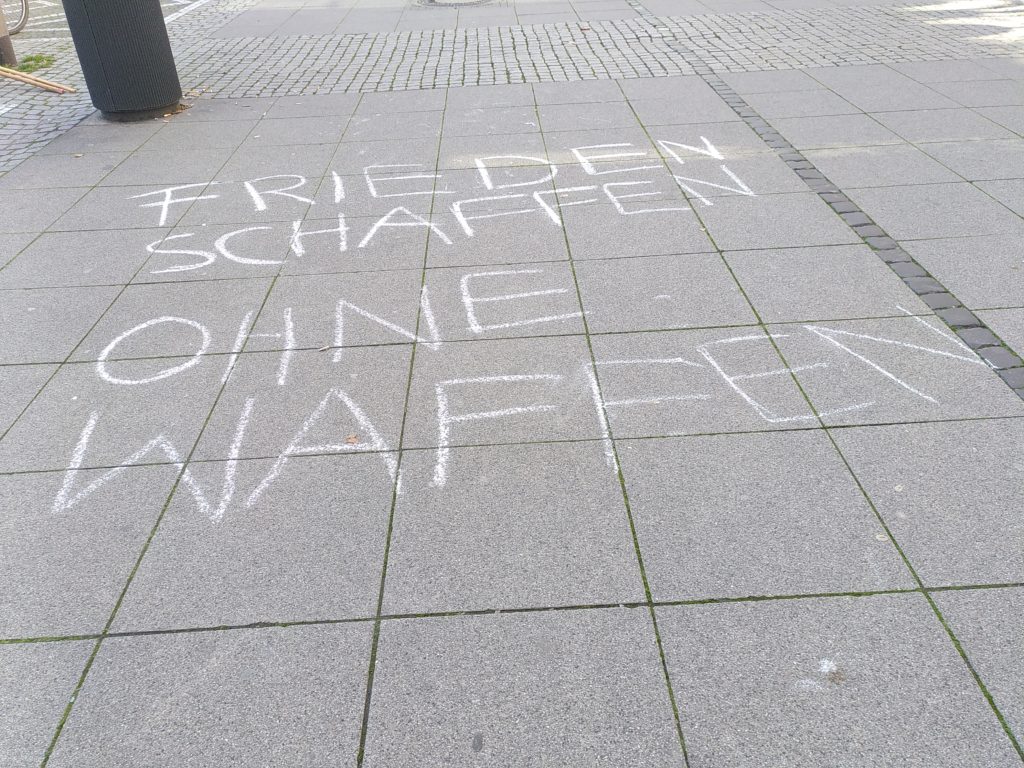 FRIEDEN
SCHAFFEN
OHNE
WAFFEN